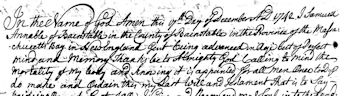 In the Name of God Amen this 9th Day of December AD 1742 I Samuel
Annable of Barnstable in the County of Barnstable in the Province of the Massa
chusetts Bay in New England Gent being advanced in Age but of Perfect
mind and Memory Thanks be to Almighty God Calling to mind the
mortality of my body and knowing it is appointed for all men once to dye
do make and Ordain this my Last Will and Testament that is to Say